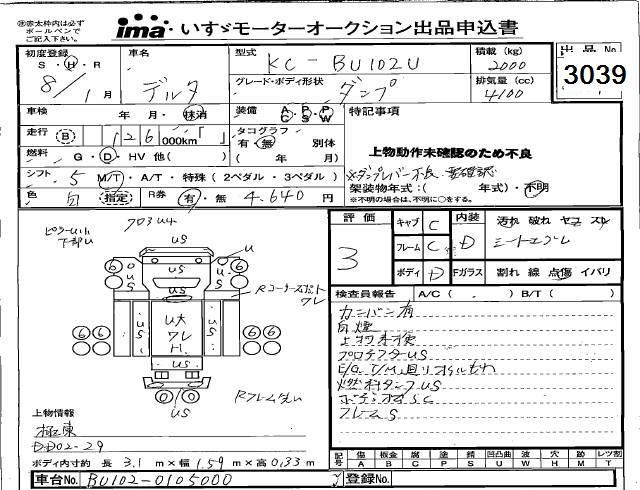 ㊟赤太枠内は必ず
ボールペンで
ご記入下さい。
ima いすゞモーターオークション出品申込書
初度登録
S・H・R
8/1月
車名
デルタ
型式
KC-BU102U
積載(kg)
2000
出品No
3039
グレード・ボディ形状
ダンプ
排気量(cc)
4100
車検
年 月・抹消
装備
A C P P
C S W
特記事項
走行
B 126 000km「 」
タコグラフ
有・無 別体
( 年 月)
上物動作未確認のため不良
燃料
G・D・HV 他( )
シフト 5 M/T・A/T・特殊(2ペダル・3ペダル)
※ダンプレバー不良、要確認
架装物年式:( 年式)・不明
※不明の場合は、不明に○をする。
色 白 指定
R券 有・無 4,640円
評価
3
キャブ C
フレーム C
ボディ D
内装 D
Fガラス
汚れ 破れ ヤコゲ スレ
シートコゲ
割れ 線 点傷 イバリ
検査員報告 A/C( . ) B/T( )
カンバン有
白煙
プロテクターUS
燃料タンクUS
フレームS
ピラーUh
下部U
クロスU4
US
U
Rコーナースポット
ワレ
6 6
U大
ワレ
H
US
US
US
6 6 6 6
US
上物情報
極東
DD02-29
ボディ内寸約 長 3.1 m×幅 1.59 m×高 0.33 m
記号
傷 板金 腐 塗 錆 凹凸曲 波 穴 跡 レツ割
A B C P S U W H M T
車台No. BU102-0105000
登録No.